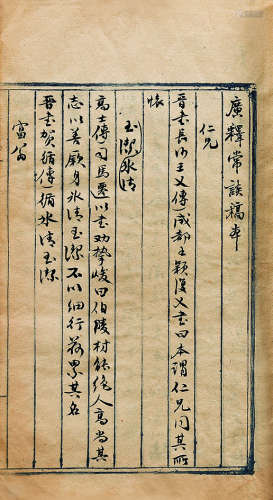 廣釋常談稿本
仁兄
晋書長沙王乂傳成都王穎復乂書曰本謂仁兄同其所
懐
玉潔冰清
高士傳司馬遷以書勸摯峻曰伯陵材能絶人高尚其
志以善厥身冰清玉潔不以細行荷累其名
晋書賀循傳循冰清玉潔
富翁